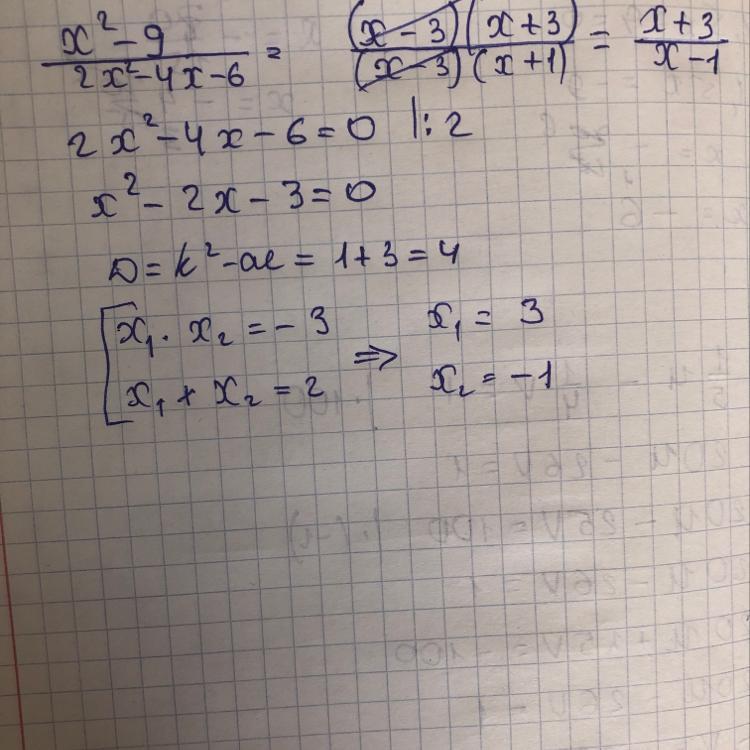 x² - 9 / 2x² - 4x - 6 = (x - 3)(x + 3) / (x - 3)(x + 1) = x + 3 / x - 1
2x² - 4x - 6 = 0 |: 2
x² - 2x - 3 = 0
D = k² - ac = 1 + 3 = 4
[ x₁ · x₂ = - 3 ⇒ x₁ = 3
x₁ + x₂ = 2 x₂ = - 1